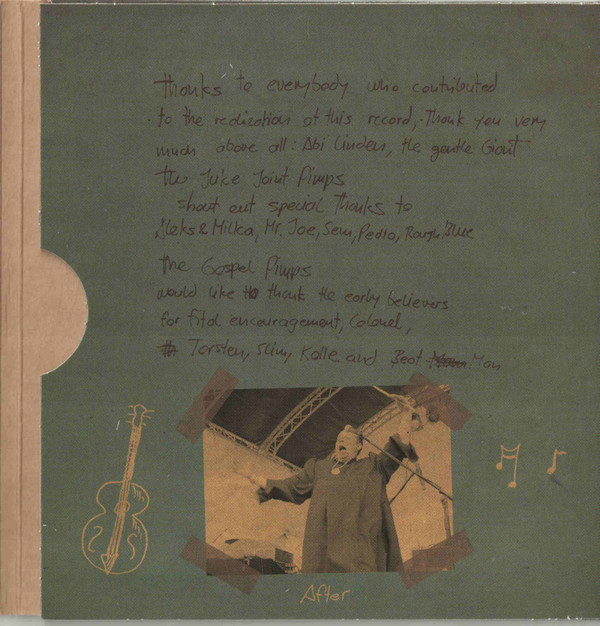 Thanks to everybody who contributed
to the realization of this record, Thank you very
much above all: Abi Linden, the gentle Giant
The Juice Joint Pimps
shout out special Thanks to
Aleks & Milka, Mr. Joe, Sem, Pedro, Rough Blue
The Gospel Pimps
would like to thank the early believers
for fital encouragement, Colonel,
Torsten, Slim, Kalle and Beat Man
After